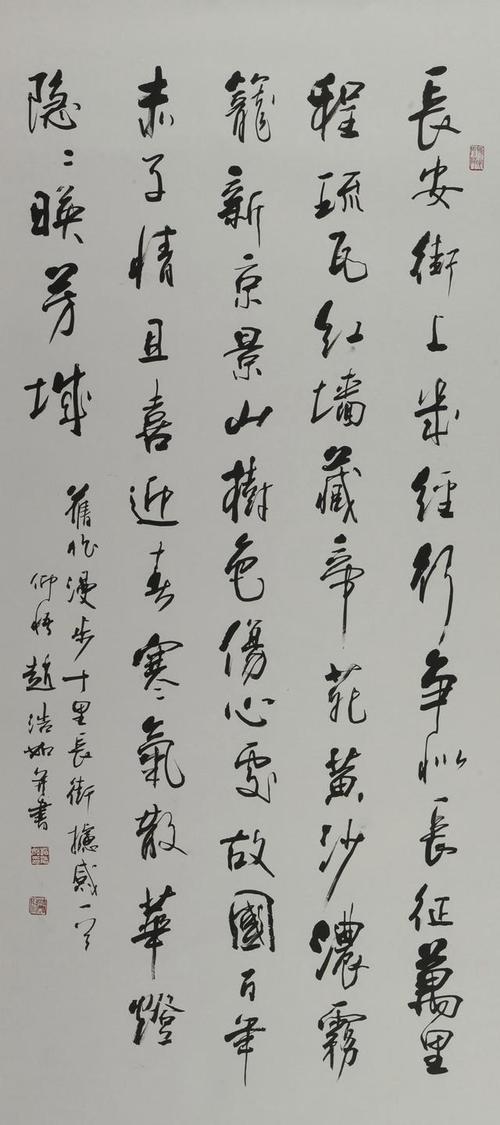 長安街上幾經行爭似長征萬里
程琉瓦紅墻藏帝苑黄沙濃霧
籠新京景山樹色傷心處故國百年
赤子情且喜迎春寒氣散華燈
隐〻暎芳城
舊作漫步十里長街攄感一首
仰悟趙浩如并書